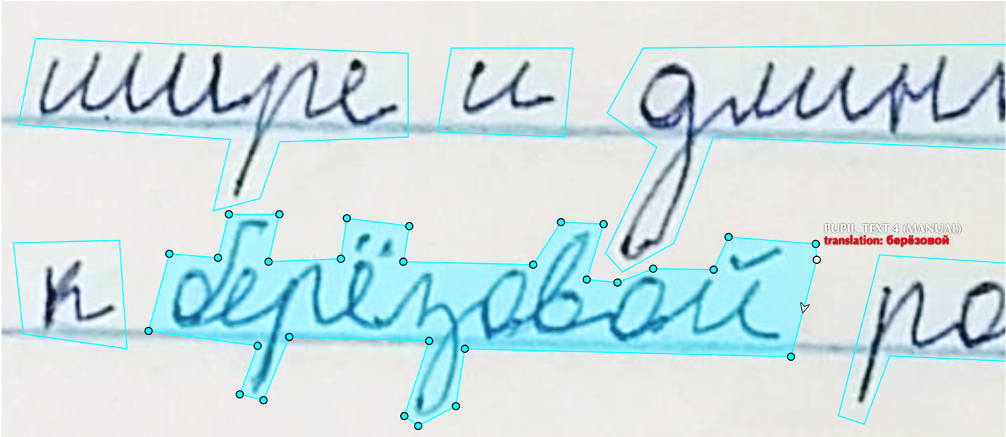 шире и длинн
к берёзовой ро
PUPIL_TEXT 4 (MANUAL)
translation: берёзовой